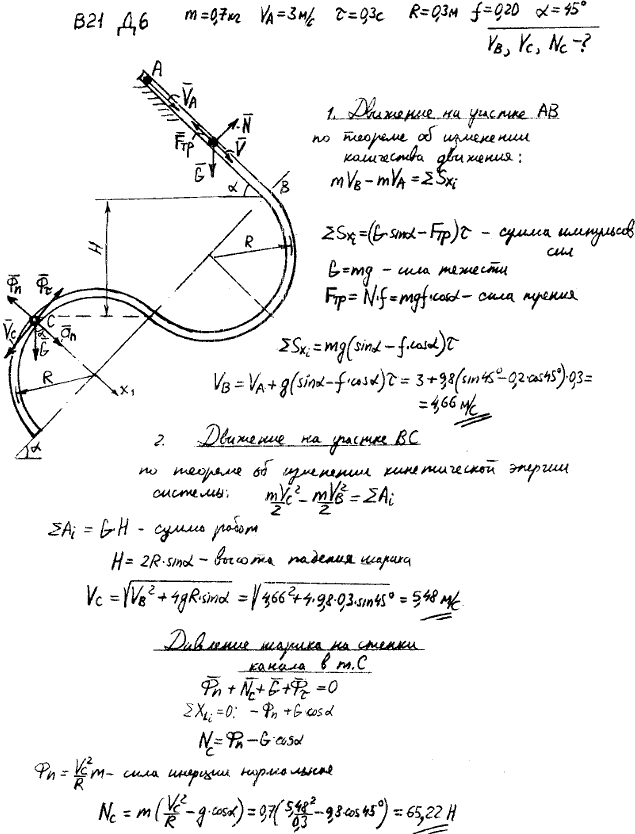 В21 Д6 m=0,7кг V_A=3м/с τ=0,3с R=0,3м f=0,20 α=45°
V_B, V_C, N_C -?
A
V̄_A
N̄
F̄тр
V̄
Ḡ
α
B
H
R
Φ̄n
Φ̄τ
C
V̄c
α
Ḡ
ā_n
R
x₁
α
1. Движение на участке АВ
по теореме об изменении
количества движения:
mV_B-mV_A=ΣSxi
ΣSxi=(G·sinα-Fтр)τ - сумма импульсов
сил
G=mg - сила тяжести
Fтр=N·f=mgf·cosα - сила трения
ΣSxi=mg(sinα-f·cosα)τ
V_B=V_A+g(sinα-f·cosα)τ=3+9,8(sin45°-0,2·cos45°)·0,3=
=4,66 м/с
2. Движение на участке ВС
по теореме об изменении кинетической энергии
системы: mV_C²/2 - mV_B²/2 = ΣAi
ΣAi = GH - сумма работ
H = 2R·sinα - высота падения шарика
V_C = √(V_B²+4gR·sinα) = √(4,66²+4·9,8·0,3·sin45°) = 5,48 м/с
Давление шарика на стенки
канала в т.С
Φ̄n + N̄c + Ḡ + Φ̄τ = 0
ΣXi=0: -Φn+G·cosα
Nc=Φn-G·cosα
Φn = Vc²/R m - сила инерции нормальная
Nc = m(Vc²/R - g·cosα) = 0,7(5,48²/0,3 - 9,8·cos45°) = 65,22 Н